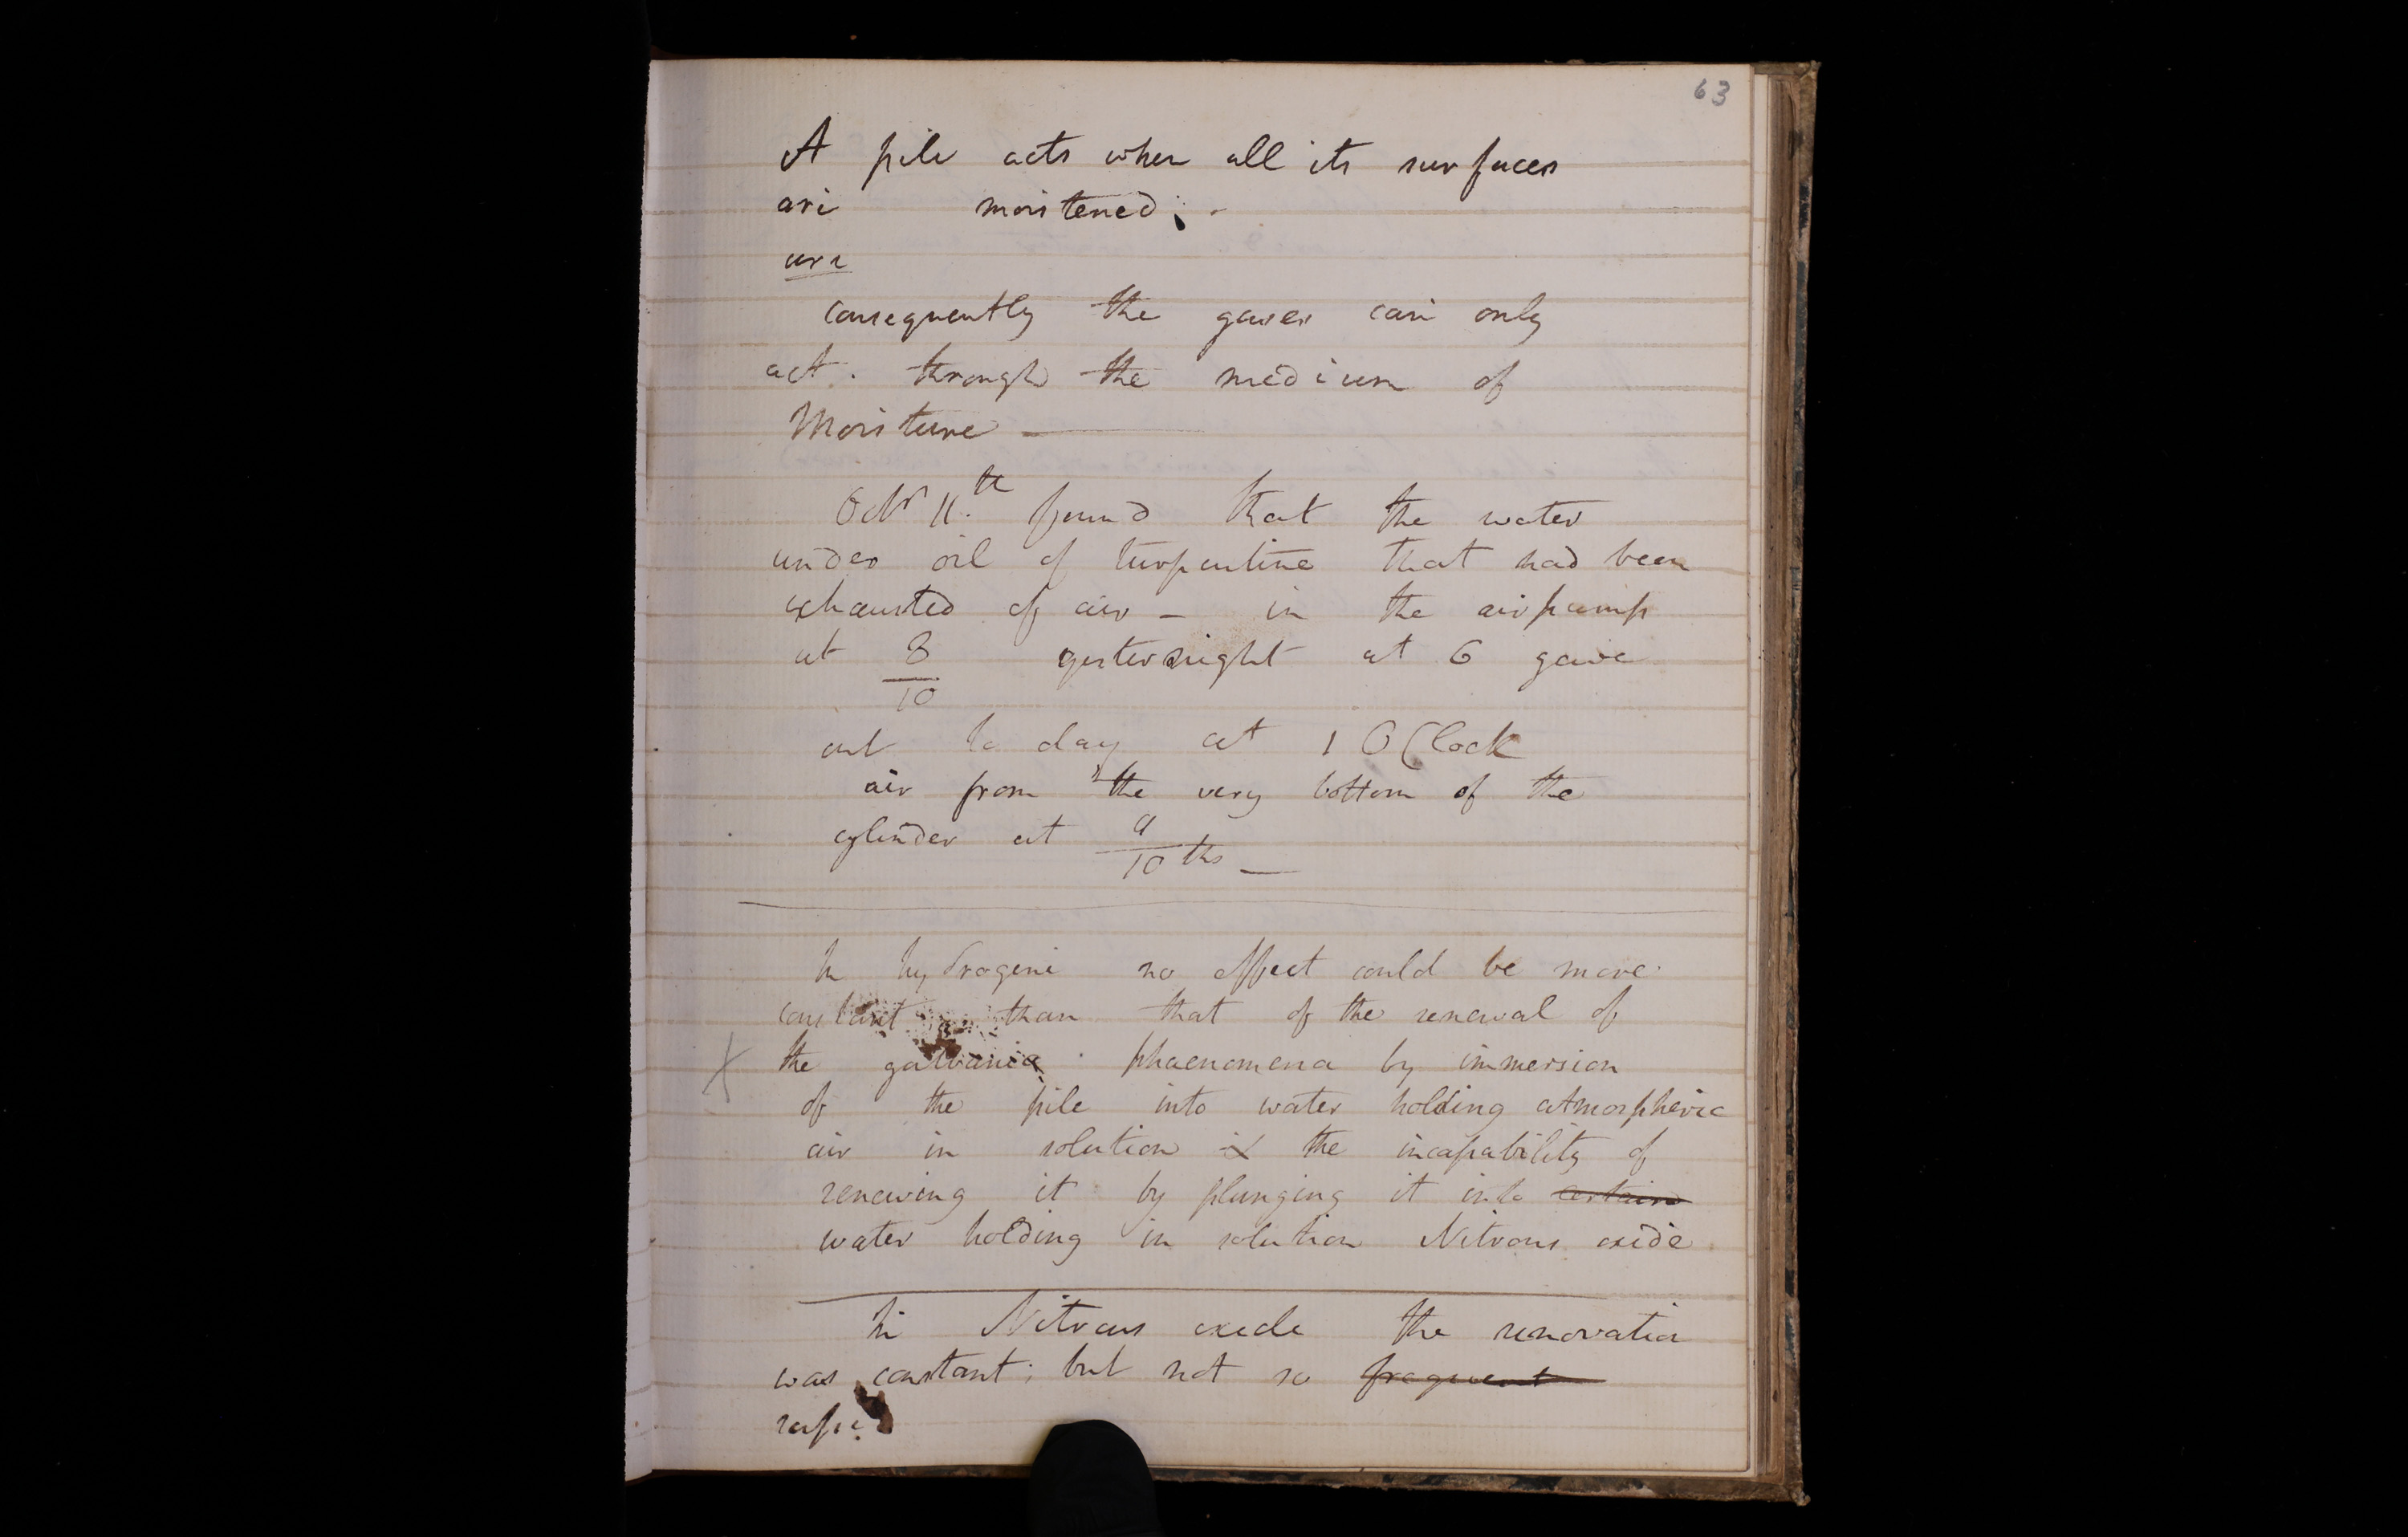 63
A pile acts when all its surfaces
are moistened; -
are
consequently the gases can only
act. through the medium of
Moisture —
Octr 11.th found that the water
under oil of turpentine that had been
exhausted of air – in the airpump
at 8/10 yesternight at 6 gave
out to day at 1 OClock
air from the very bottom of the
cylinder at 9/10 ths —
In hydrogene no effect could be more
constant than that of the renewal of
the galvanic phaenomena by immersion
of the pile into water holding atmospheric
air in solution & the incapability of
renewing it by plunging it into certain
water holding in solution Nitrous oxide
In Nitrous oxide the renovation
was constant; but not so frequent
rapid